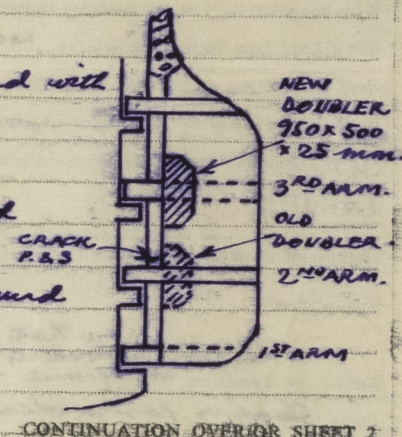 d with
NEW
DOUBLER
950 X 500
X 25 mm.
3RD ARM.
d
OLD
DOUBLER.
CRACK
P. & S
2ND ARM.
und
1ST ARM
CONTINUATION OVER/OR SHEET 2